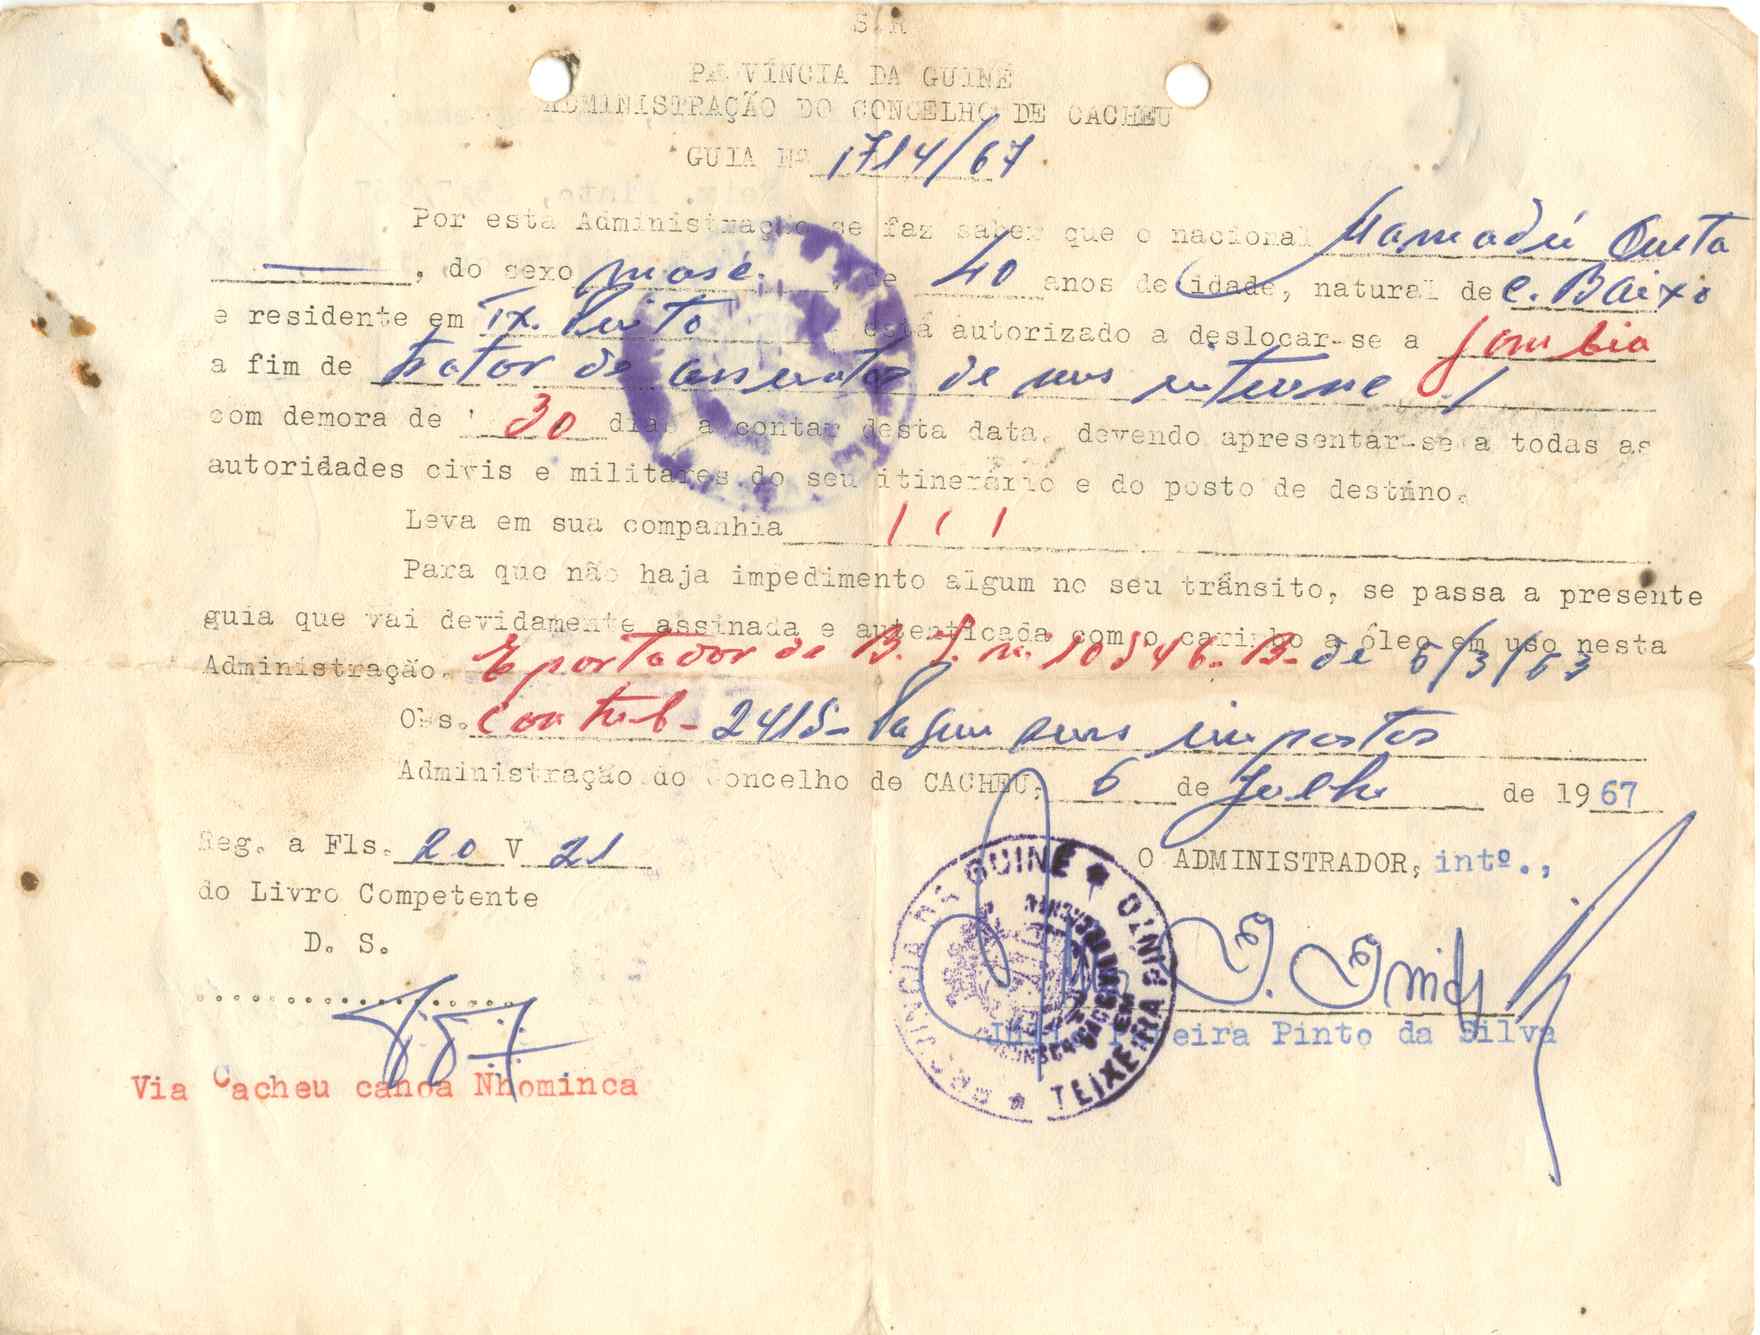 S. R
PROVÍNCIA DA GUINÉ
ADMINISTRAÇÃO DO CONCELHO DE CACHEU
GUIA Nº 1714/67.
Por esta Administração se faz saber que o nacional Mamadú
, do sexo masc. , de 40 anos de idade, natural de C. Baixo
e residente em Tx. Pinto está autorizado a deslocar-se a Gambia
a fim de tratar de assuntos de seus interesse /
com demora de 30 dias a contar desta data, devendo apresentar-se a todas as
autoridades civis e militares do seu itinerário e do posto de destino.
Leva em sua companhia / / /
Para que não haja impedimento algum no seu trânsito, se passa a presente
guia que vai devidamente assinada e autenticada com o carimbo a óleo em uso nesta
Administração. E portador do B. I. nº 10546-B- de 6/3/63
Obs. Contrib- 2415- Pagou seus impostos
Administração do Concelho de CACHEU, 6 de Julho de 1967
Reg. a Fls. 20 V 21
do Livro Competente
D. S.
O ADMINISTRADOR, intº.,
Pereira Pinto da Silva
PROVINCIA DA GUINÉ ★ TEIXEIRA PINTO ★
Via Cacheu canoa Nhominca